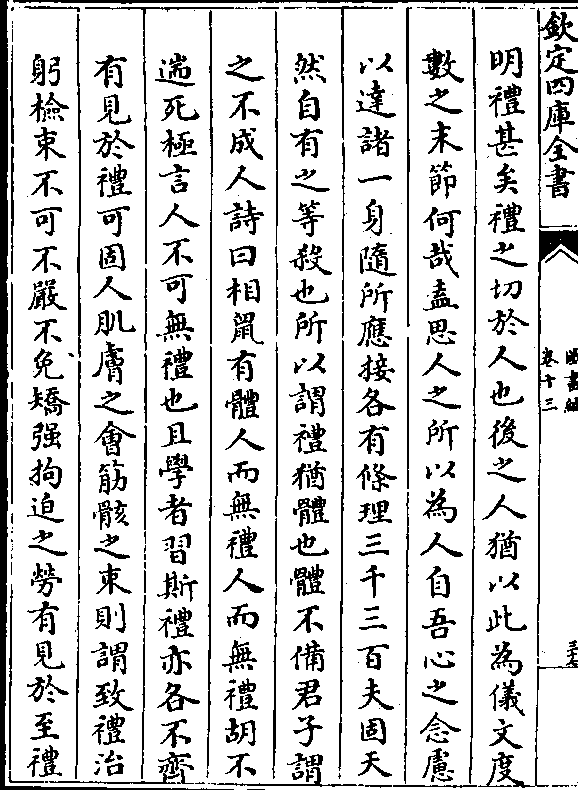 欽定四庫全書
卷十三
明禮甚矣禮之切於人也後之人猶以此為儀文度
數之末節何哉盍思人之所以為人自吾心之念慮
以達諸一身隨所應接各有條理三千三百夫固天
然自有之等殺也所以謂禮猶體也體不備君子謂
之不成人詩曰相鼠有體人而無禮人而無禮胡不
遄死極言人不可無禮也且學者習斯禮亦各不齊
有見於禮可固人肌膚之會筋骸之束則謂致禮治
躬檢束不可不嚴不免矯强拘迫之勞有見於至禮